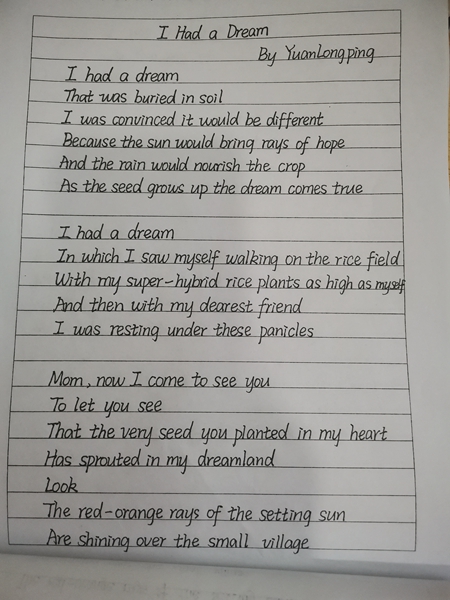 I Had a Dream
By YuanLongping
I had a dream
That was buried in soil
I was convinced it would be different
Because the sun would bring rays of hope
And the rain would nourish the crop
As the seed grows up the dream comes true
I had a dream
In which I saw myself walking on the rice field
With my super-hybrid rice plants as high as myself
And then with my dearest friend
I was resting under these panicles
Mom, now I come to see you
To let you see
That the very seed you planted in my heart
Has sprouted in my dreamland
Look
The red-orange rays of the setting sun
Are shining over the small village